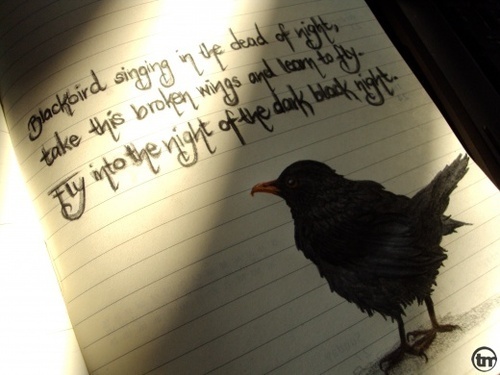 Blackbird singing in the dead of night,
take this broken wings and learn to fly.
Fly into the night of the dark black night.
tm